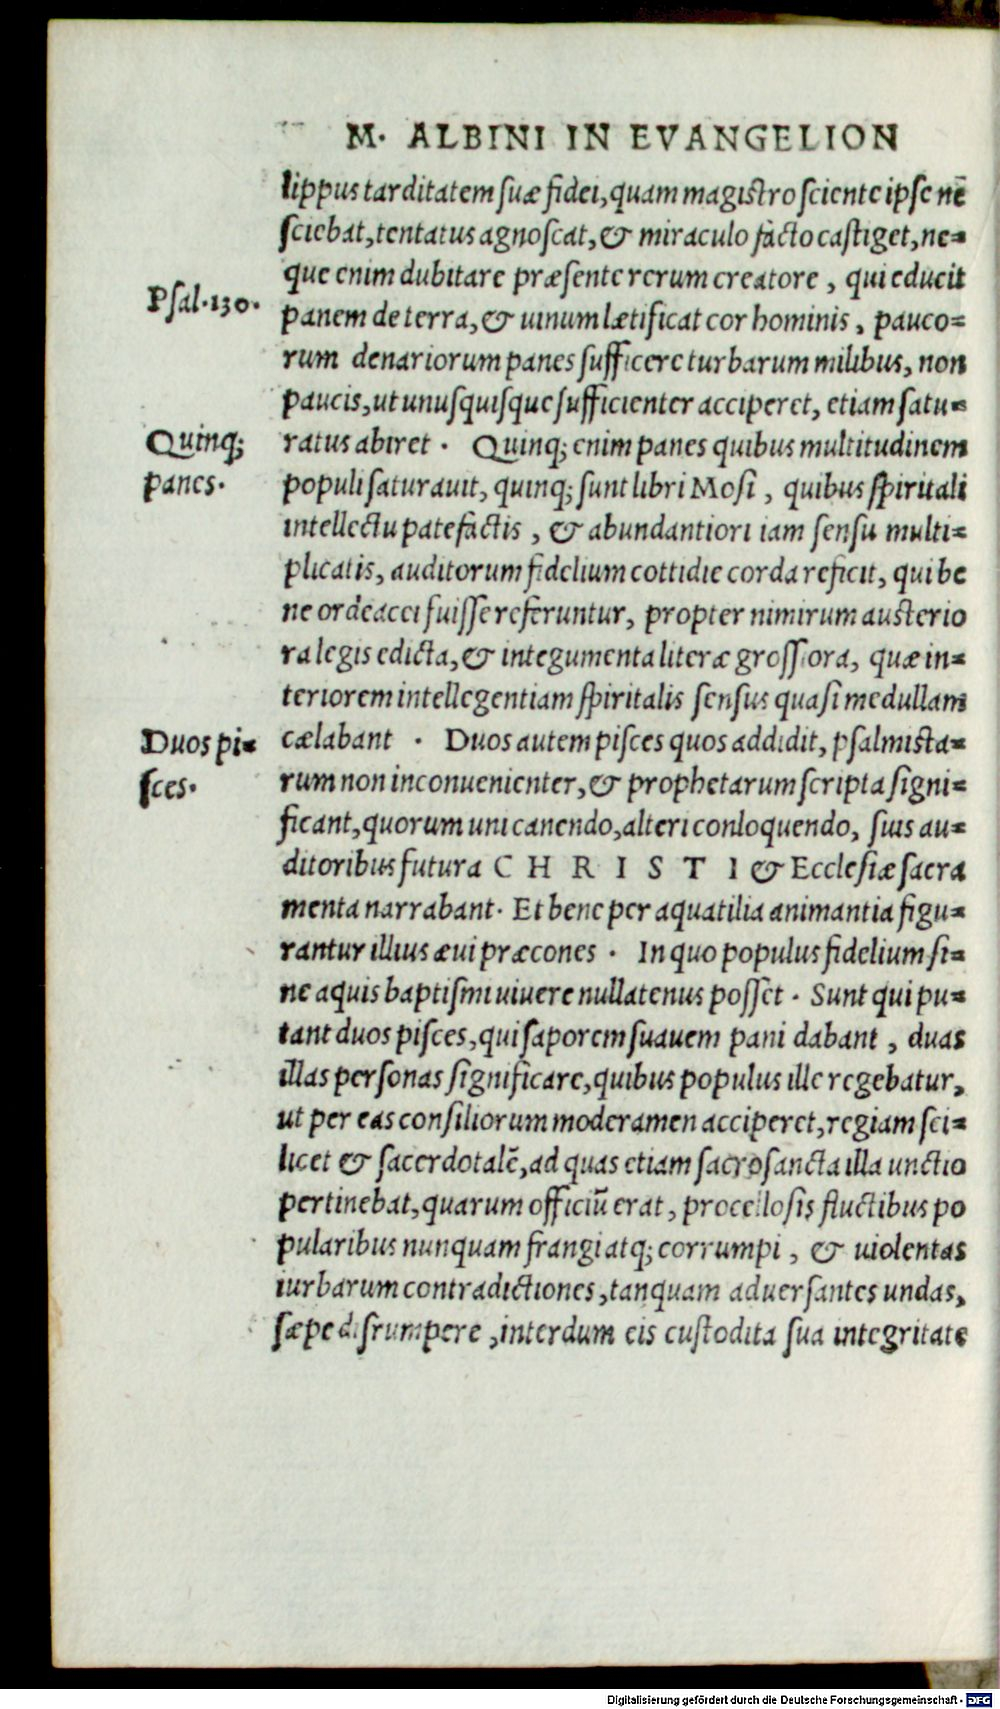 M. ALBINI IN EVANGELION
lippus tarditatem suæ fidei, quam magistro sciente ipse nē
sciebat, tentatus agnoscat, & miraculo facto castiget, ne=
que enim dubitare præsente rerum creatore, qui educit
Psal.130.
panem de terra, & uinum lætificat cor hominis, pauco=
rum denariorum panes sufficere turbarum milibus, non
paucis, ut unusquisque sufficienter acciperet, etiam satu=
Quinq;
ratus abiret. Quinq; enim panes quibus multitudinem
panes.
populi saturauit, quinq; sunt libri Mosi, quibus spiritali
intellectu patefactis, & abundantiori iam sensu multi=
plicatis, auditorum fidelium cottidie corda reficit, qui be
ne ordeacei fuisse referuntur, propter nimirum austerio
ra legis edicta, & integumenta literæ grossiora, quæ in=
teriorem intellegentiam spiritalis sensus quasi medullam
Duos pi=
cælabant. Duos autem pisces quos addidit, psalmista=
sces.
rum non inconuenienter, & prophetarum scripta signi=
ficant, quorum uni canendo, alteri conloquendo, suis au=
ditoribus futura CHRISTI & Ecclesiæ sacra
menta narrabant. Et bene per aquatilia animantia figu=
rantur illius æui præcones. In quo populus fidelium si=
ne aquis baptismi uiuere nullatenus posset. Sunt qui pu=
tant duos pisces, qui saporem suauem pani dabant, duas
illas personas significare, quibus populus ille regebatur,
ut per eas consiliorum moderamen acciperet, regiam sci=
licet & sacerdotalē, ad quas etiam sacrosancta illa unctio
pertinebat, quarum officiū erat, procellosis fluctibus po
pularibus nunquam frangi atq; corrumpi, & uiolentas
turbarum contradictiones, tanquam aduersantes undas,
sæpe disrumpere, interdum eis custodita sua integritate
Digitalisierung gefördert durch die Deutsche Forschungsgemeinschaft - DFG